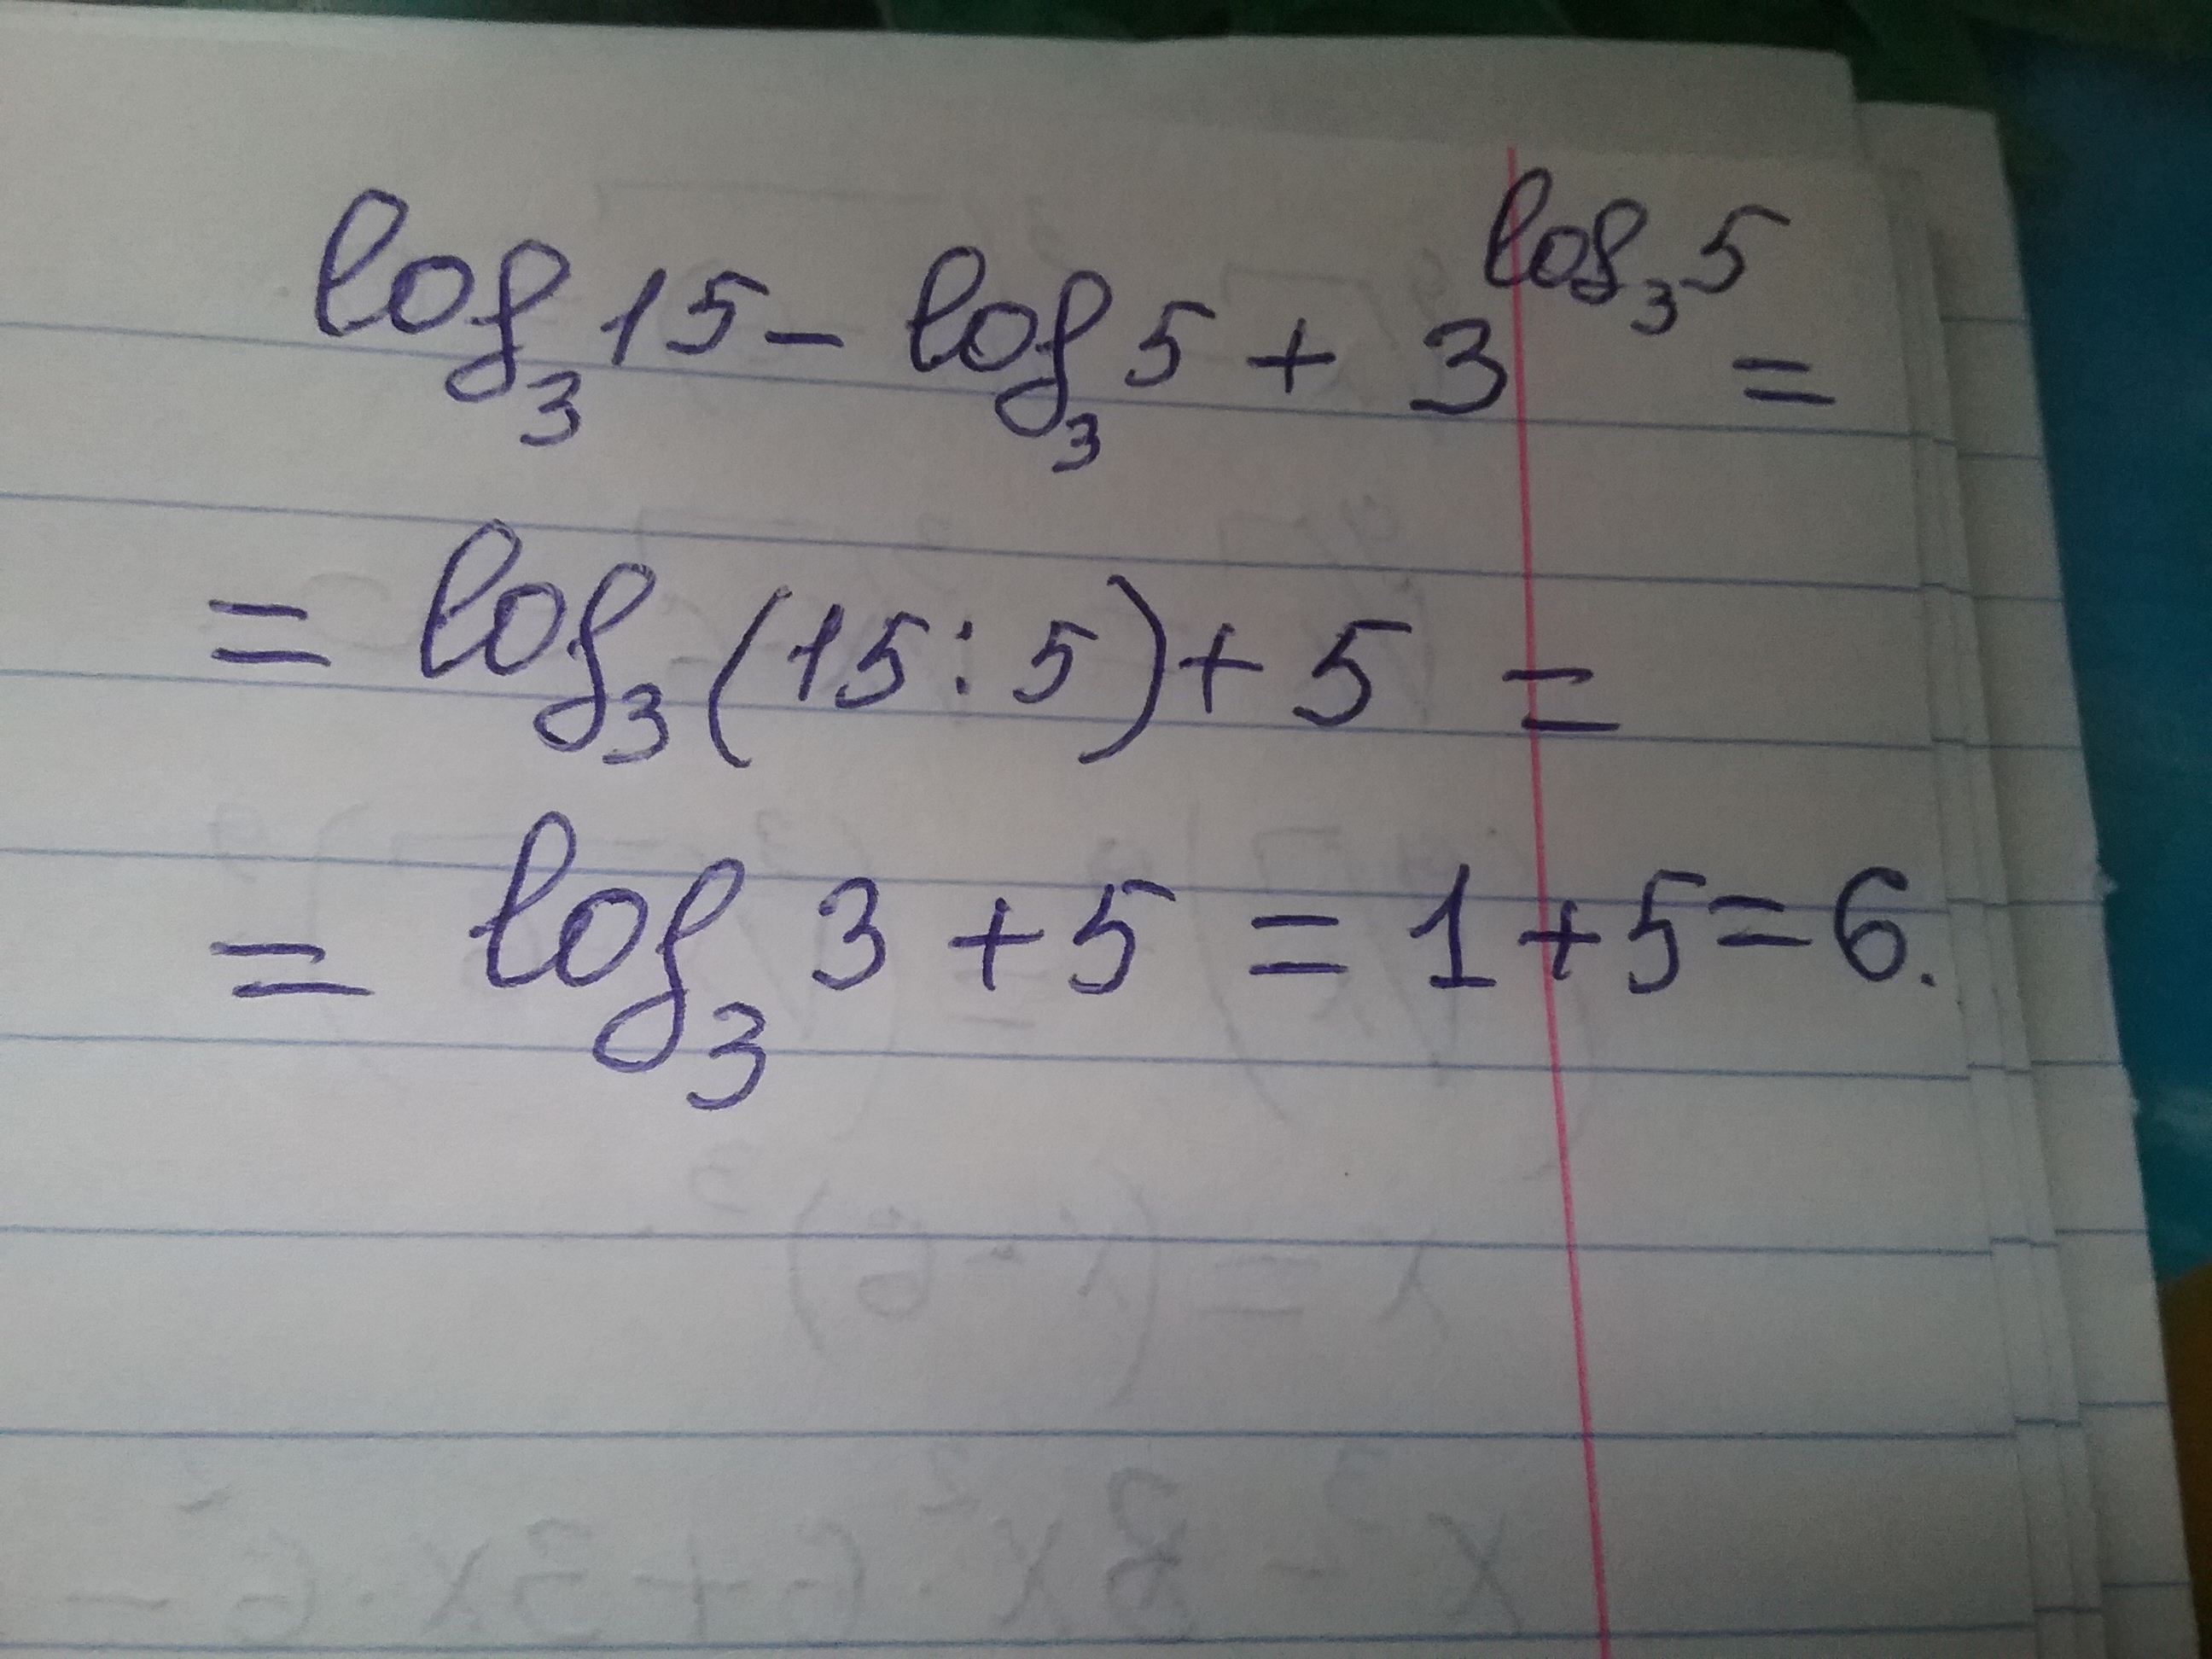 log₃ 15 - log₃ 5 + 3^(log₃ 5) =
= log₃ (15 : 5) + 5 =
= log₃ 3 + 5 = 1 + 5 = 6.